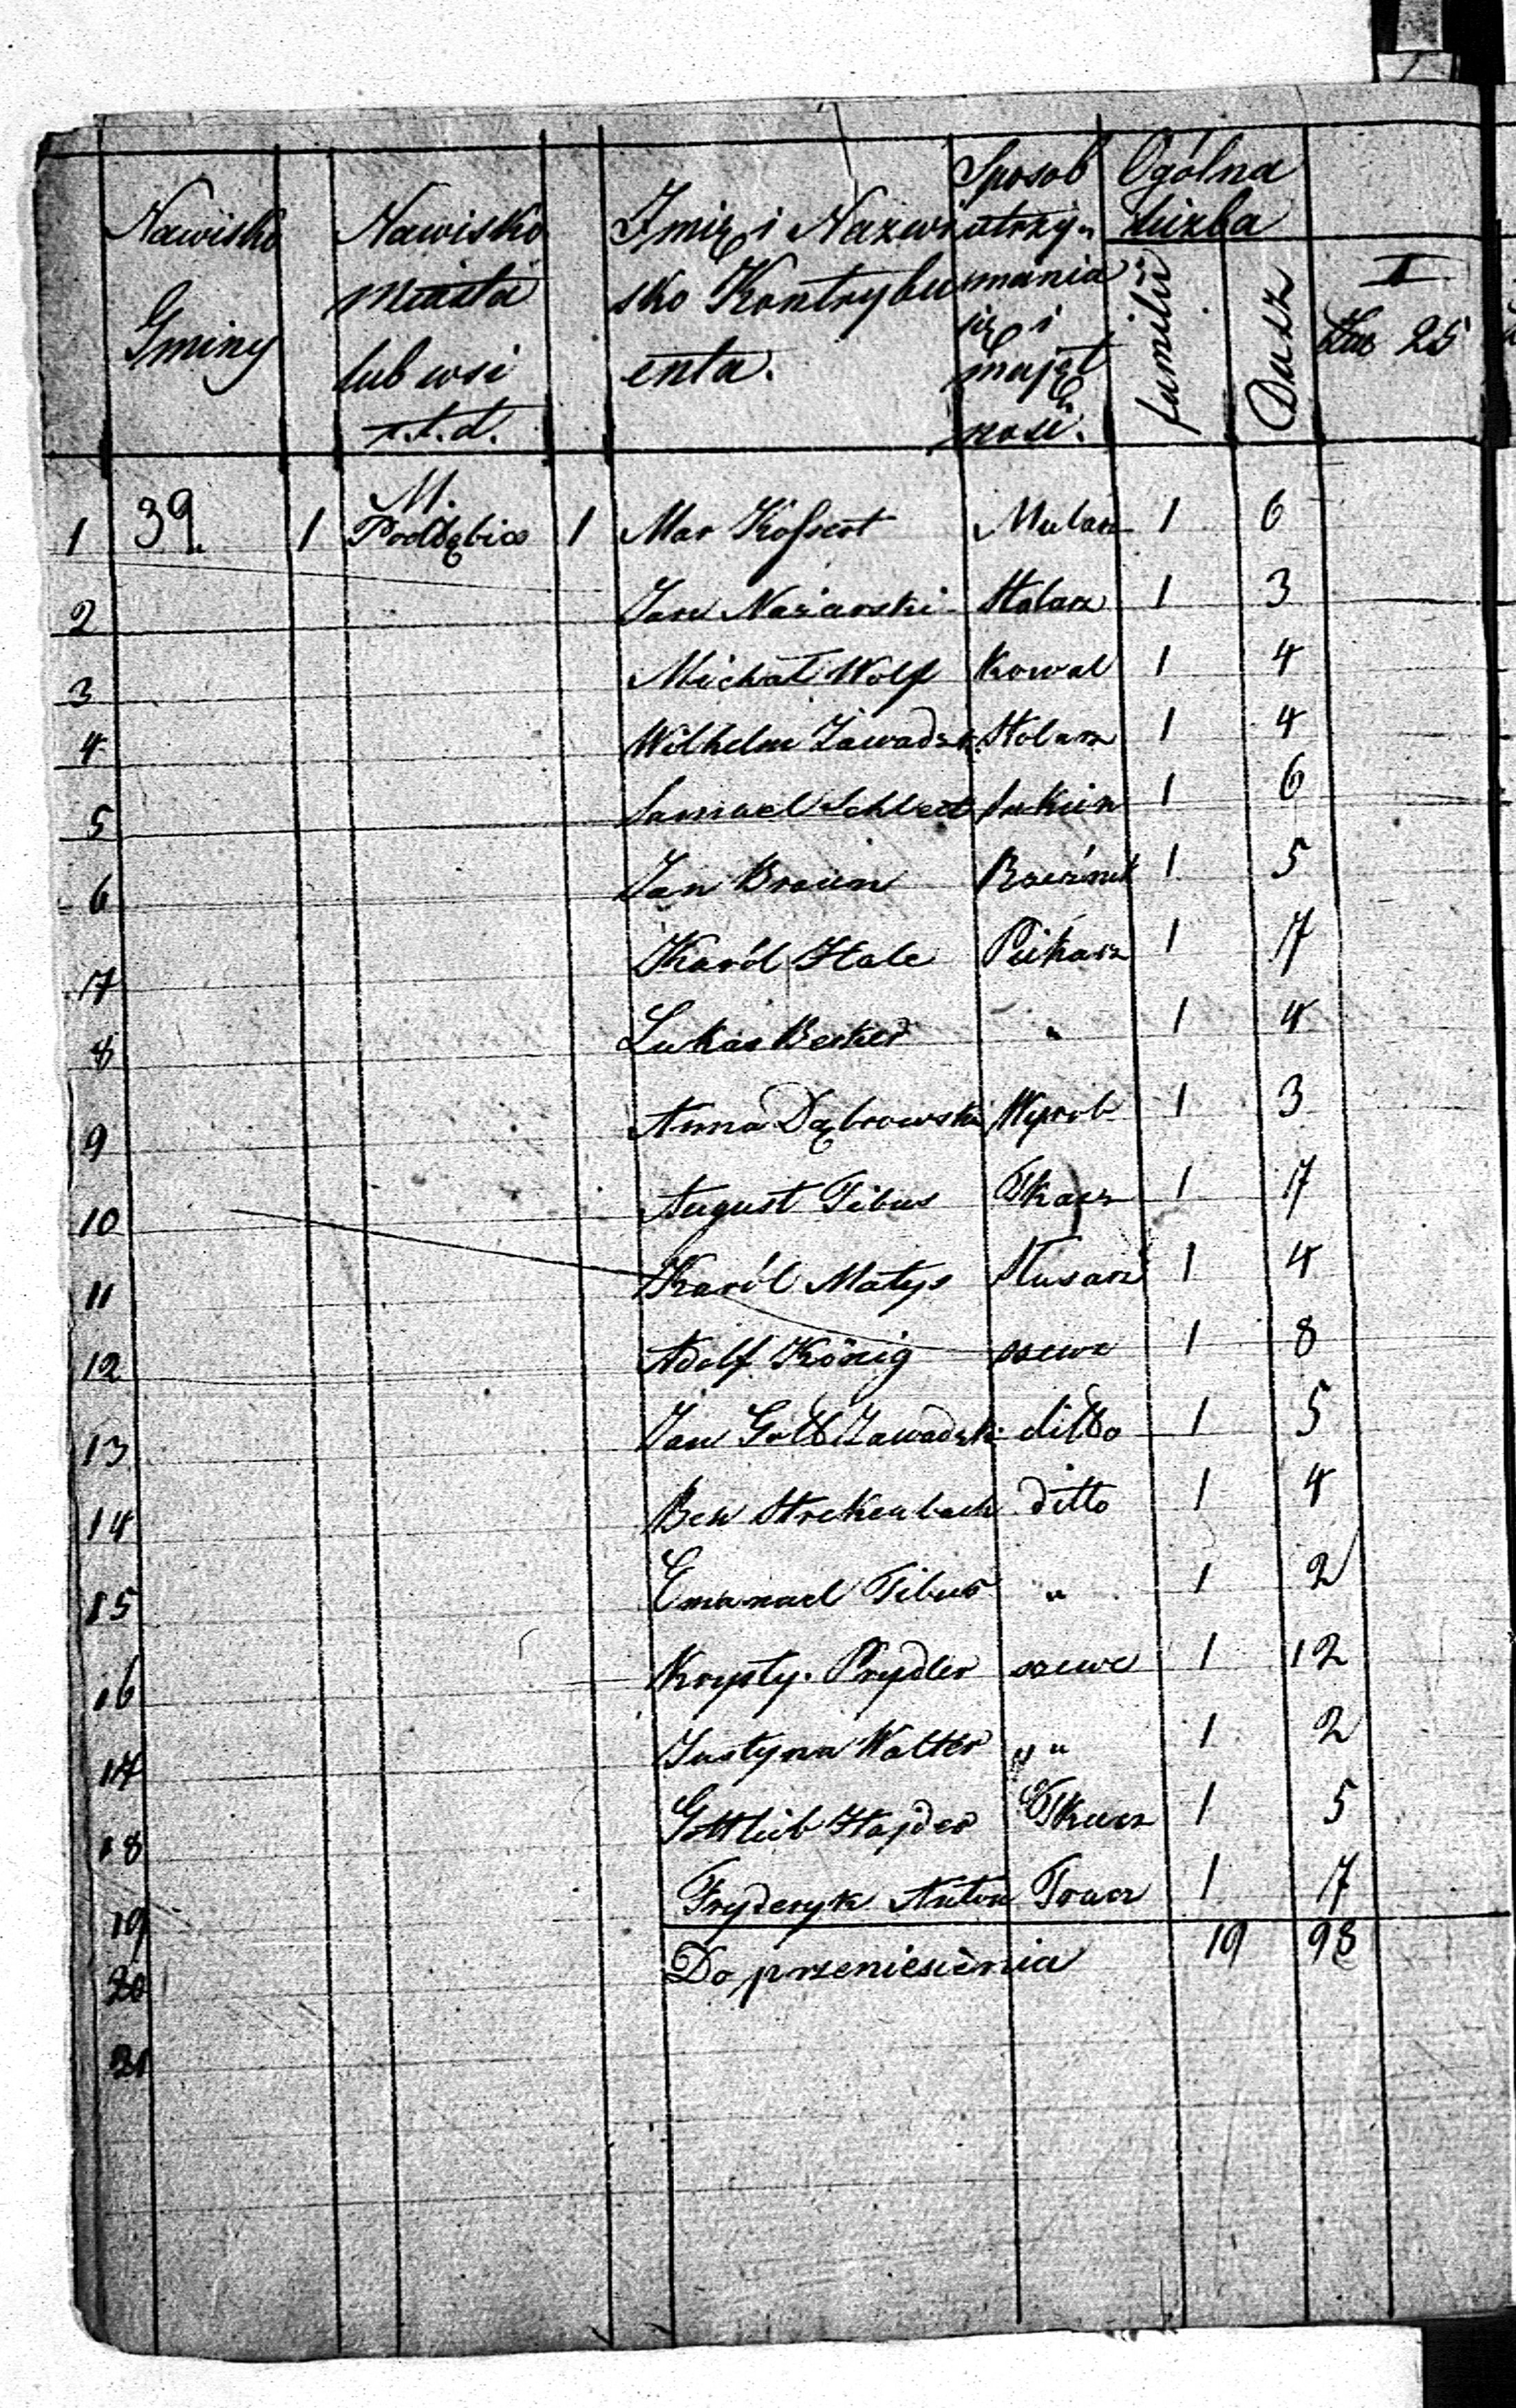 Nawisko Gminy
Nawisko miasta lub wsi i.t.d.
Imię i Nazwisko Kontrybuenta.
Sposob utrzymania się i majętnosć.
Ogólna liczba
familii
Dusz
I
Klas 25
1 39. 1 M. Poddębice 1 Mar Kossert Mularz 1 6
2 Jan Nażarski Stolarz 1 3
3 Michał Wolf Kowal 1 4
4 Wilhelm Zawadzk. Stolarz 1 4
5 Samuel Sukien 1 6
6 Jan Braun 1 5
7 Karól Hale Piekarz 1 7
8 Lukas Beker " 1 4
9 Anna Dąbrowska Wyrob 1 3
10 August Tibus Tkacz 1 7
11 Karól Matys Slusarz 1 4
12 Adolf König szewc 1 8
13 Jan Gottl Zawadzki ditto 1 5
14 Ben Strekenbach ditto 1 4
15 Emanuel Tibus " 1 2
16 Krysty. Prydler szewc 1 12
17 Justyna Walter " " 1 2
18 Gottlieb Hajder Tkacz 1 5
19 Fryderyk Anton Tracz 1 7
20 Do przeniesienia 19 98
21